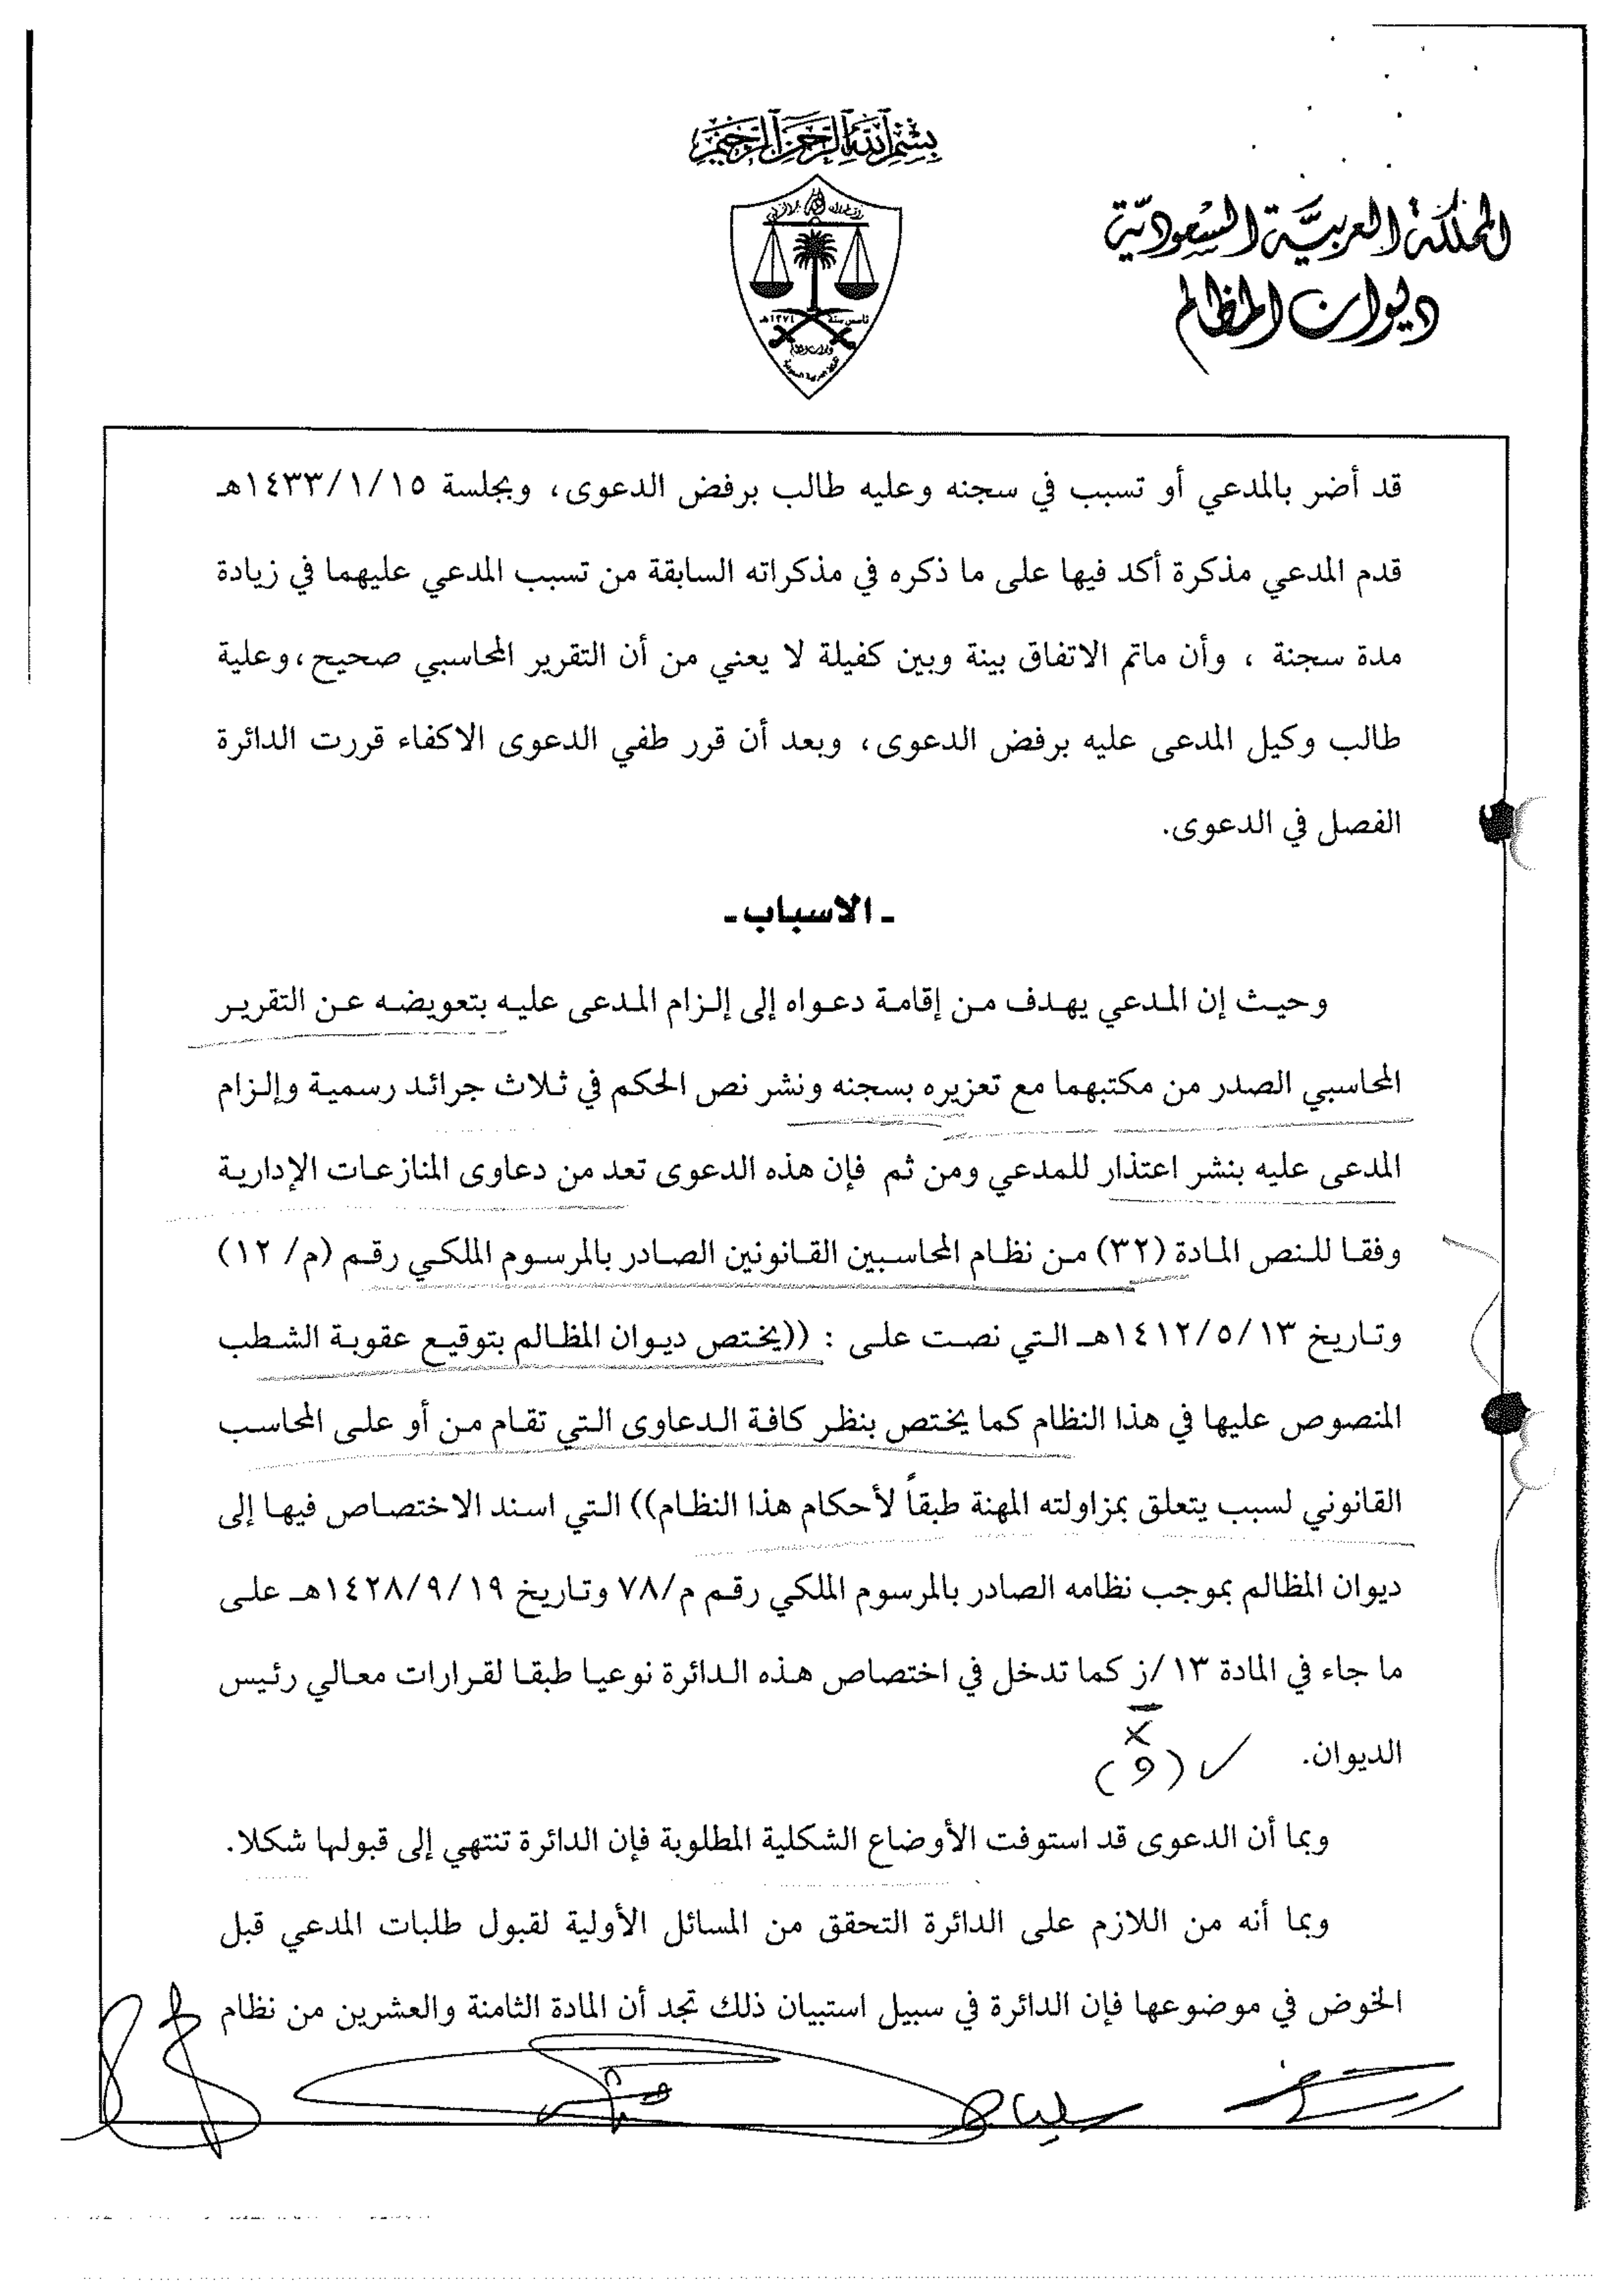 بسم الله الرحمن الرحيم
المملكة العربية السعودية
ديوان المظالم
تأسس سنة ١٣٧٤هـ
قد أضر بالمدعي أو تسبب في سجنه وعليه طالب برفض الدعوى، وبجلسة ١٤٣٣/١/١٥هـ
قدم المدعي مذكرة أكد فيها على ما ذكره في مذكراته السابقة من تسبب المدعي عليهما في زيادة
مدة سجنة ، وأن ماتم الاتفاق بينة وبين كفيلة لا يعني من أن التقرير المحاسبي صحيح، وعلية
طالب وكيل المدعى عليه برفض الدعوى، وبعد أن قرر طفي الدعوى الاكفاء قررت الدائرة
الفصل في الدعوى.
ـ الاسباب ـ
وحيث إن المدعي يهدف من إقامة دعواه إلى إلزام المدعى عليه بتعويضه عن التقرير
المحاسبي الصدر من مكتبهما مع تعزيره بسجنه ونشر نص الحكم في ثلاث جرائد رسمية وإلزام
المدعى عليه بنشر اعتذار للمدعي ومن ثم فإن هذه الدعوى تعد من دعاوى المنازعات الإدارية
وفقا للنص المادة (٣٢) من نظام المحاسبين القانونين الصادر بالمرسوم الملكي رقم (م/ ١٢)
وتاريخ ١٤١٢/٥/١٣هـ التي نصت على : ((يختص ديوان المظالم بتوقيع عقوبة الشطب
المنصوص عليها في هذا النظام كما يختص بنظر كافة الدعاوى التي تقام من أو على المحاسب
القانوني لسبب يتعلق بمزاولته المهنة طبقاً لأحكام هذا النظام)) التي اسند الاختصاص فيها إلى
ديوان المظالم بموجب نظامه الصادر بالمرسوم الملكي رقم م/٧٨ وتاريخ ١٤٢٨/٩/١٩هـ على
ما جاء في المادة ١٣/ز كما تدخل في اختصاص هذه الدائرة نوعيا طبقا لقرارات معالي رئيس
الديوان.
(و)
وبما أن الدعوى قد استوفت الأوضاع الشكلية المطلوبة فإن الدائرة تنتهي إلى قبولها شكلا.
وبما أنه من اللازم على الدائرة التحقق من المسائل الأولية لقبول طلبات المدعي قبل
الخوض في موضوعها فإن الدائرة في سبيل استبيان ذلك تجد أن المادة الثامنة والعشرين من نظام